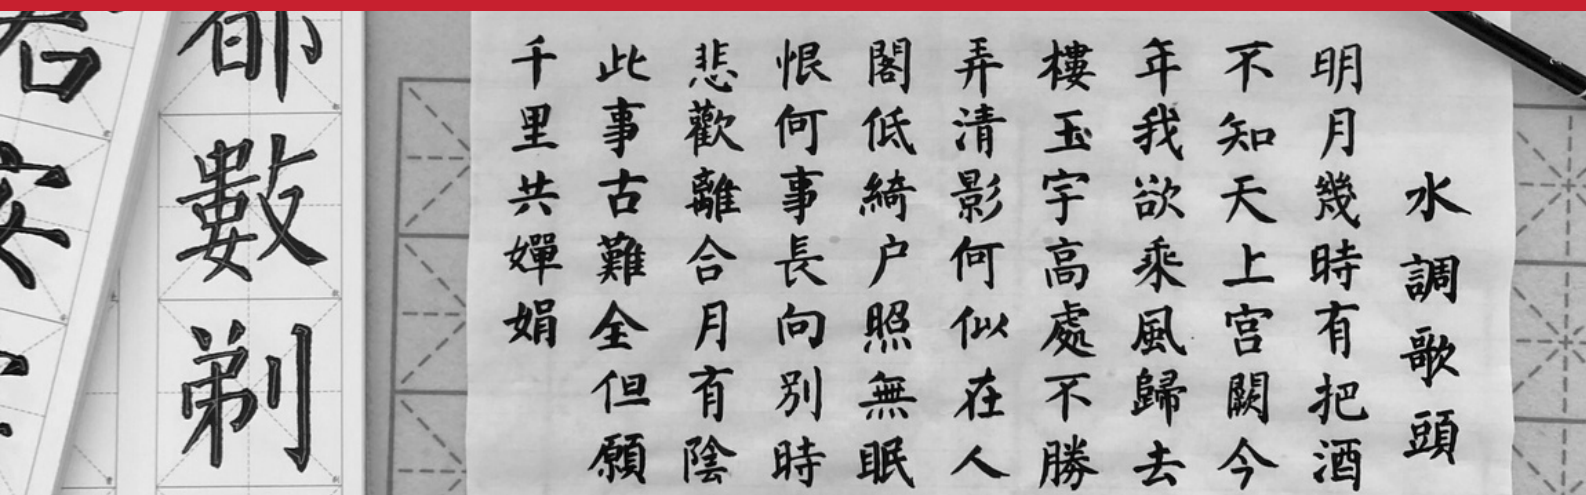 水調歌頭
明月幾時有把酒
不知天上宮闕今
年我欲乘風歸去
樓玉宇高處不勝
弄清影何似在人
閣低綺户照無眠
恨何事長向別時
悲歡離合月有陰
此事古難全但願
千里共嬋娟
數剃